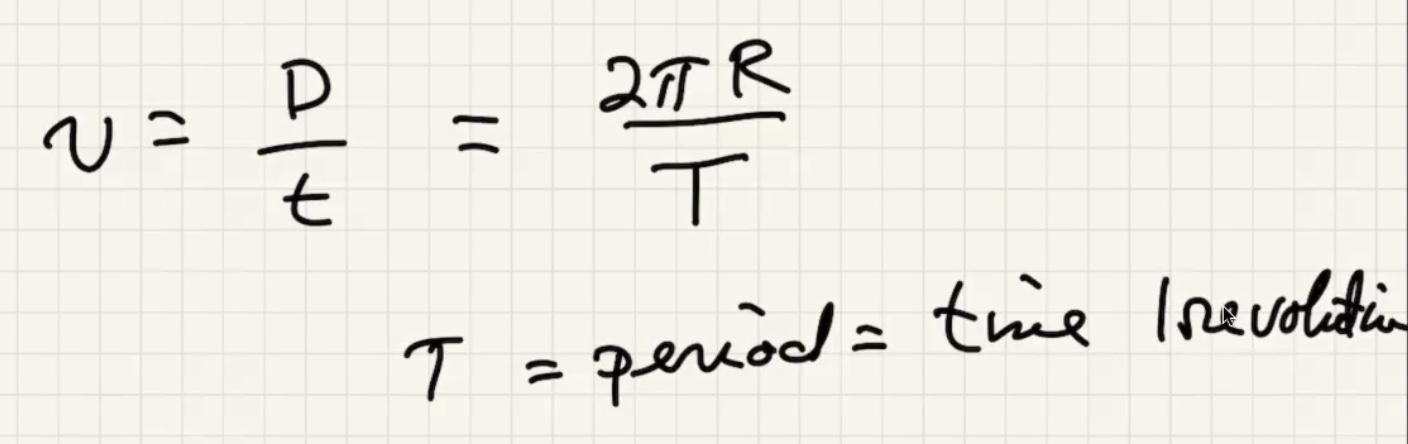 v = D/t = 2πR/T
T = period = time 1 revolution